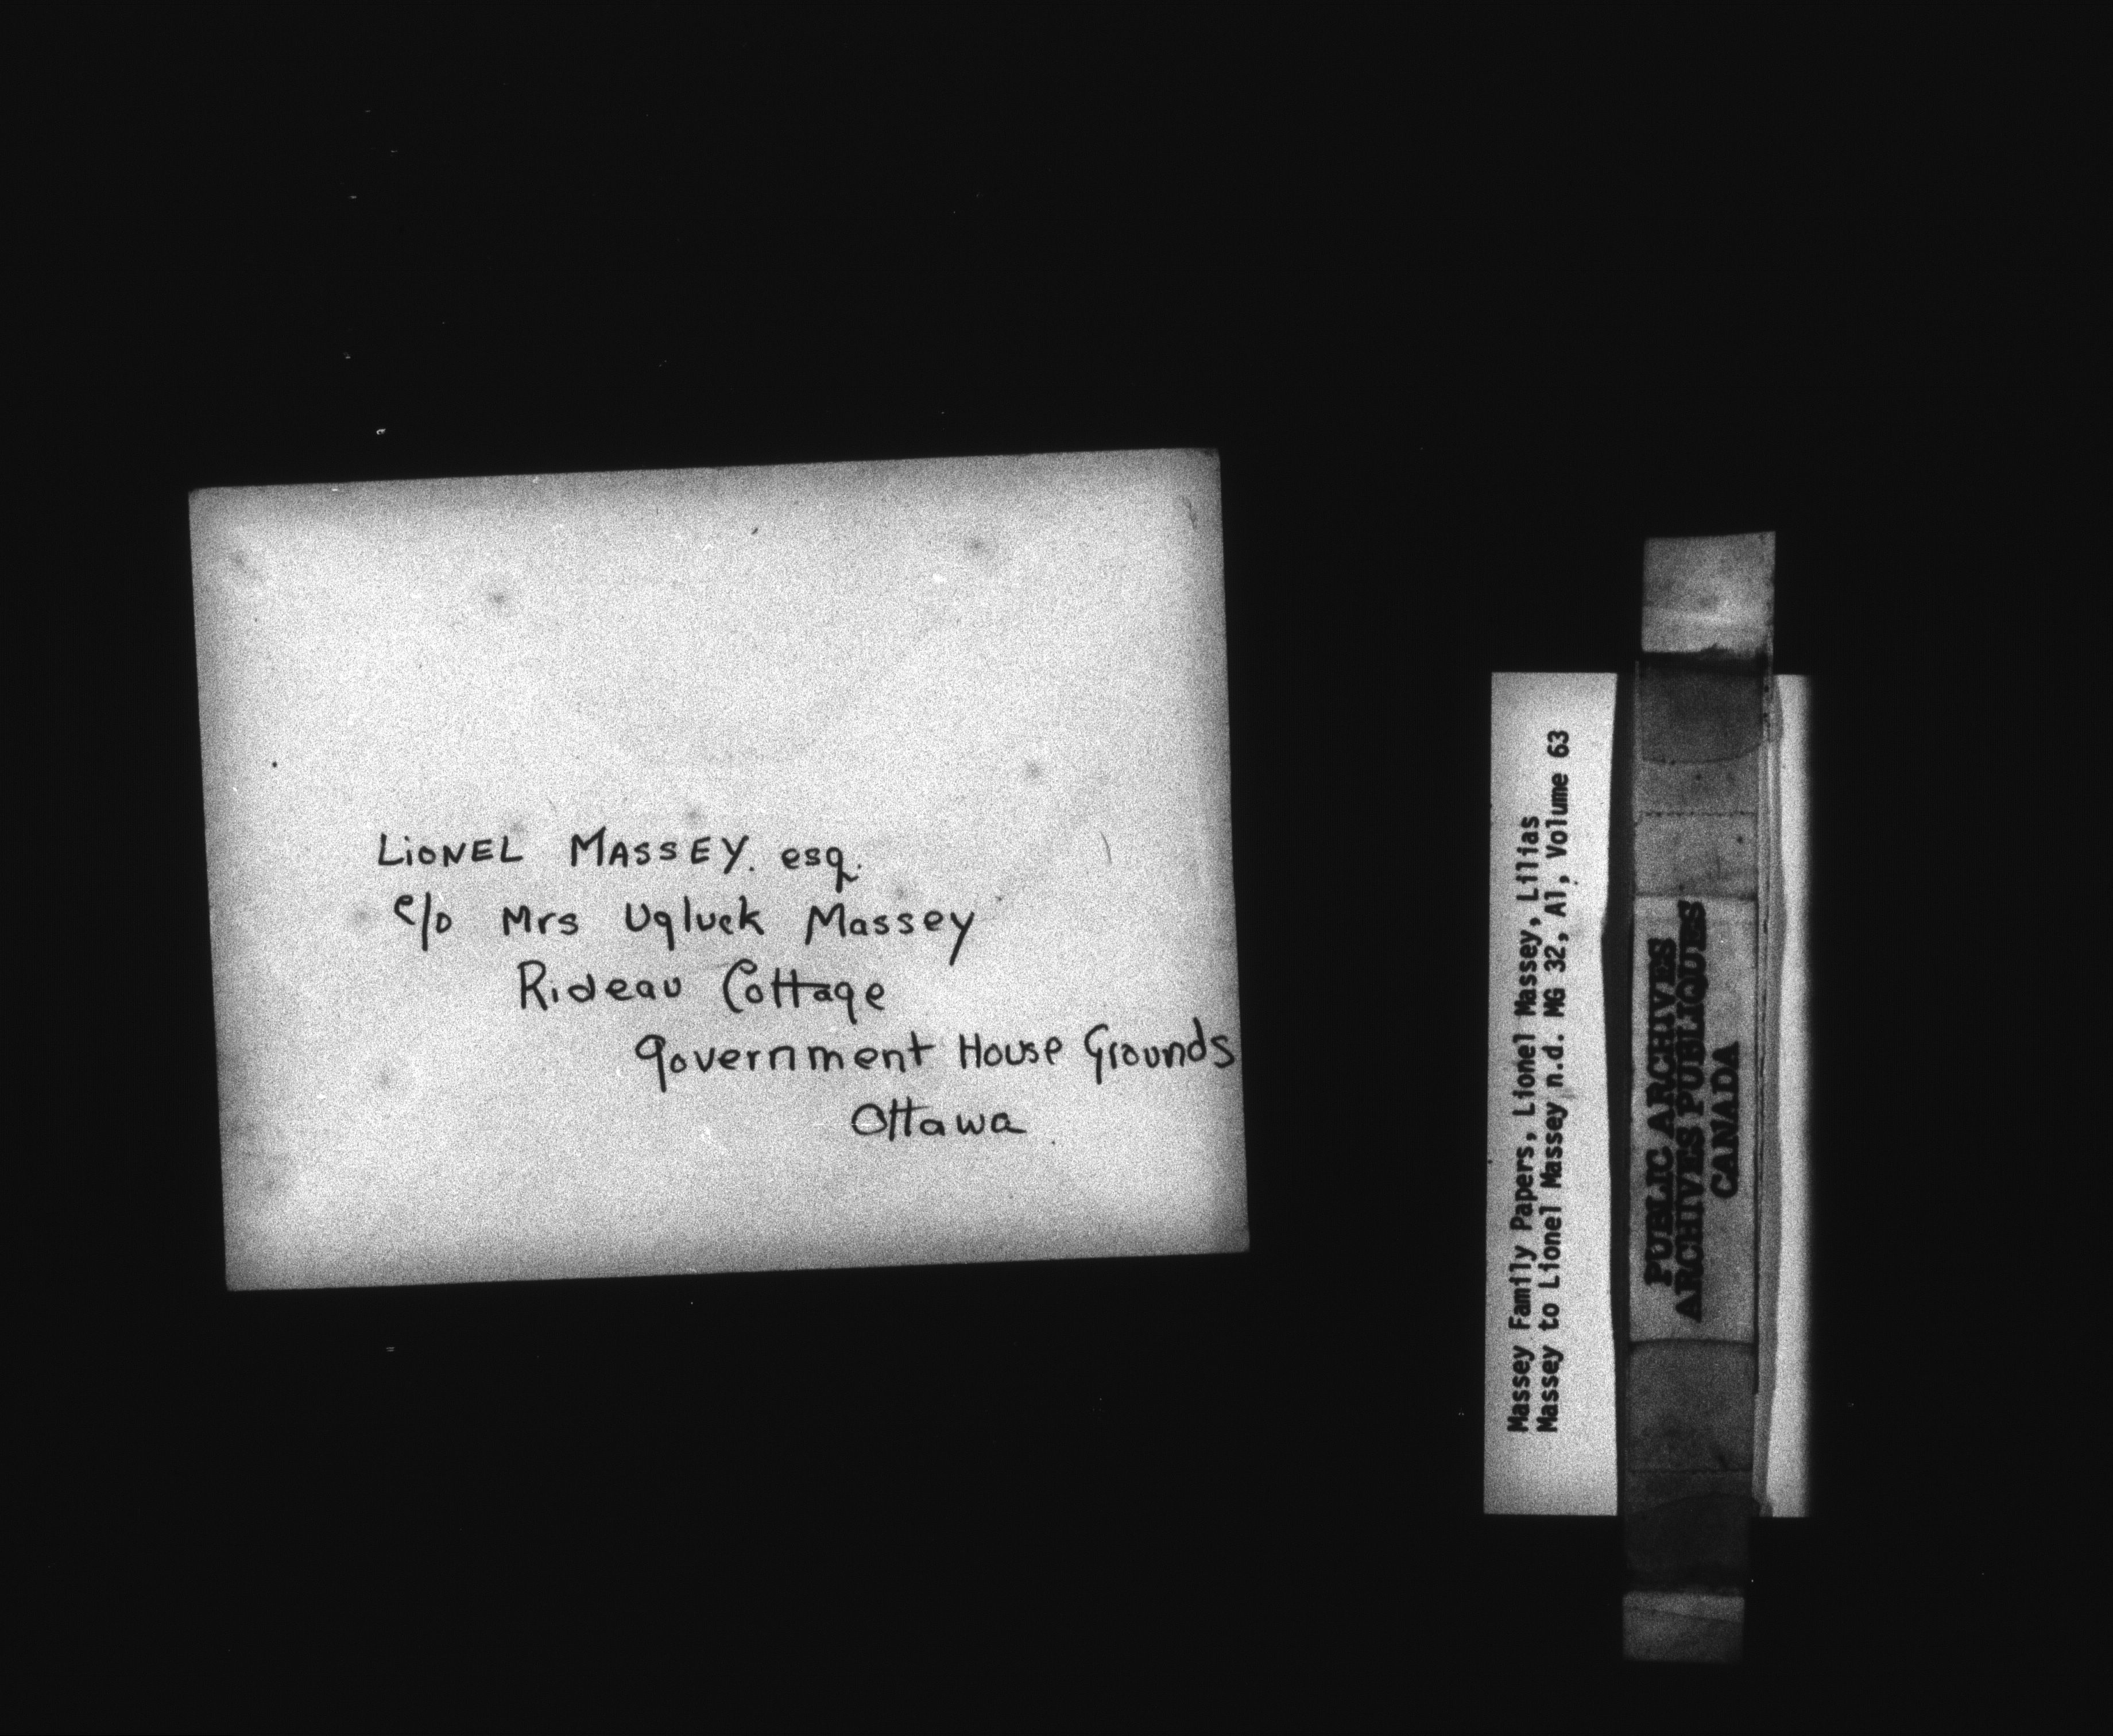 LiONEL MASSEY. esq.
c/o Mrs Ugluck Massey
Rideau Cottage
Government House Grounds
Ottawa
Massey Family Papers, Lionel Massey, Lilias
Massey to Lionel Massey n.d. MG 32, A1, Volume 63
PUBLIC ARCHIVES
ARCHIVES PUBLIQUES
CANADA